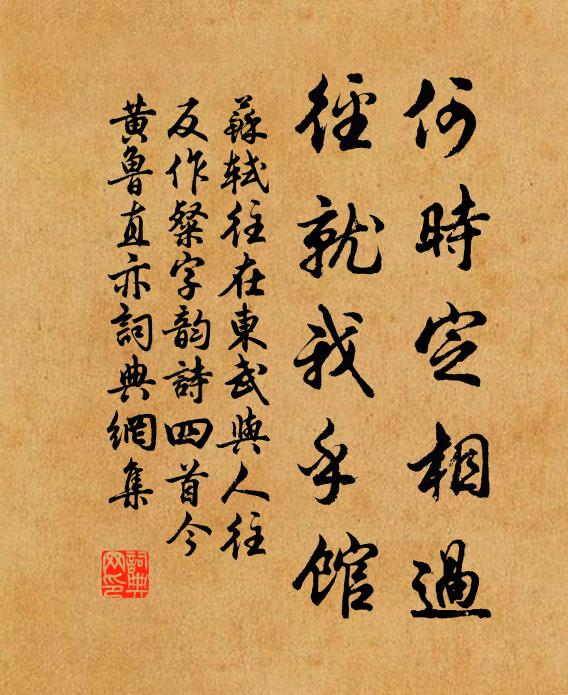 何時定相過
徑就我乎館
蘇軾往在東武與人往
反作粲字韵詩四首今
黃魯直亦詞典網集
詞典网印